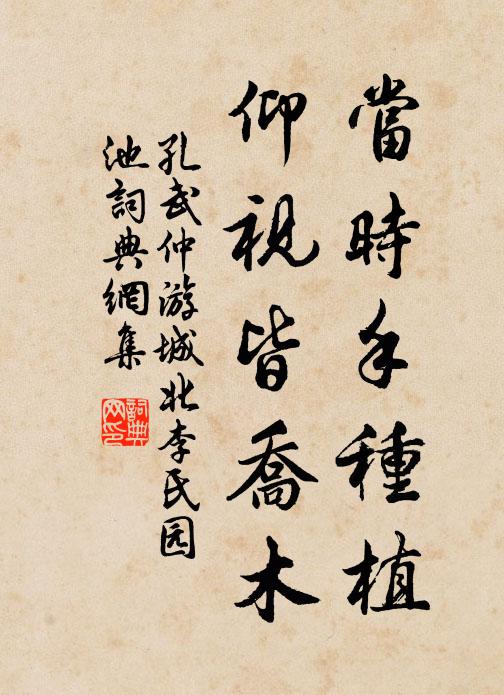 當時手種植
仰視皆喬木
孔武仲游城北李民园
池詞典網集
詞典
网印